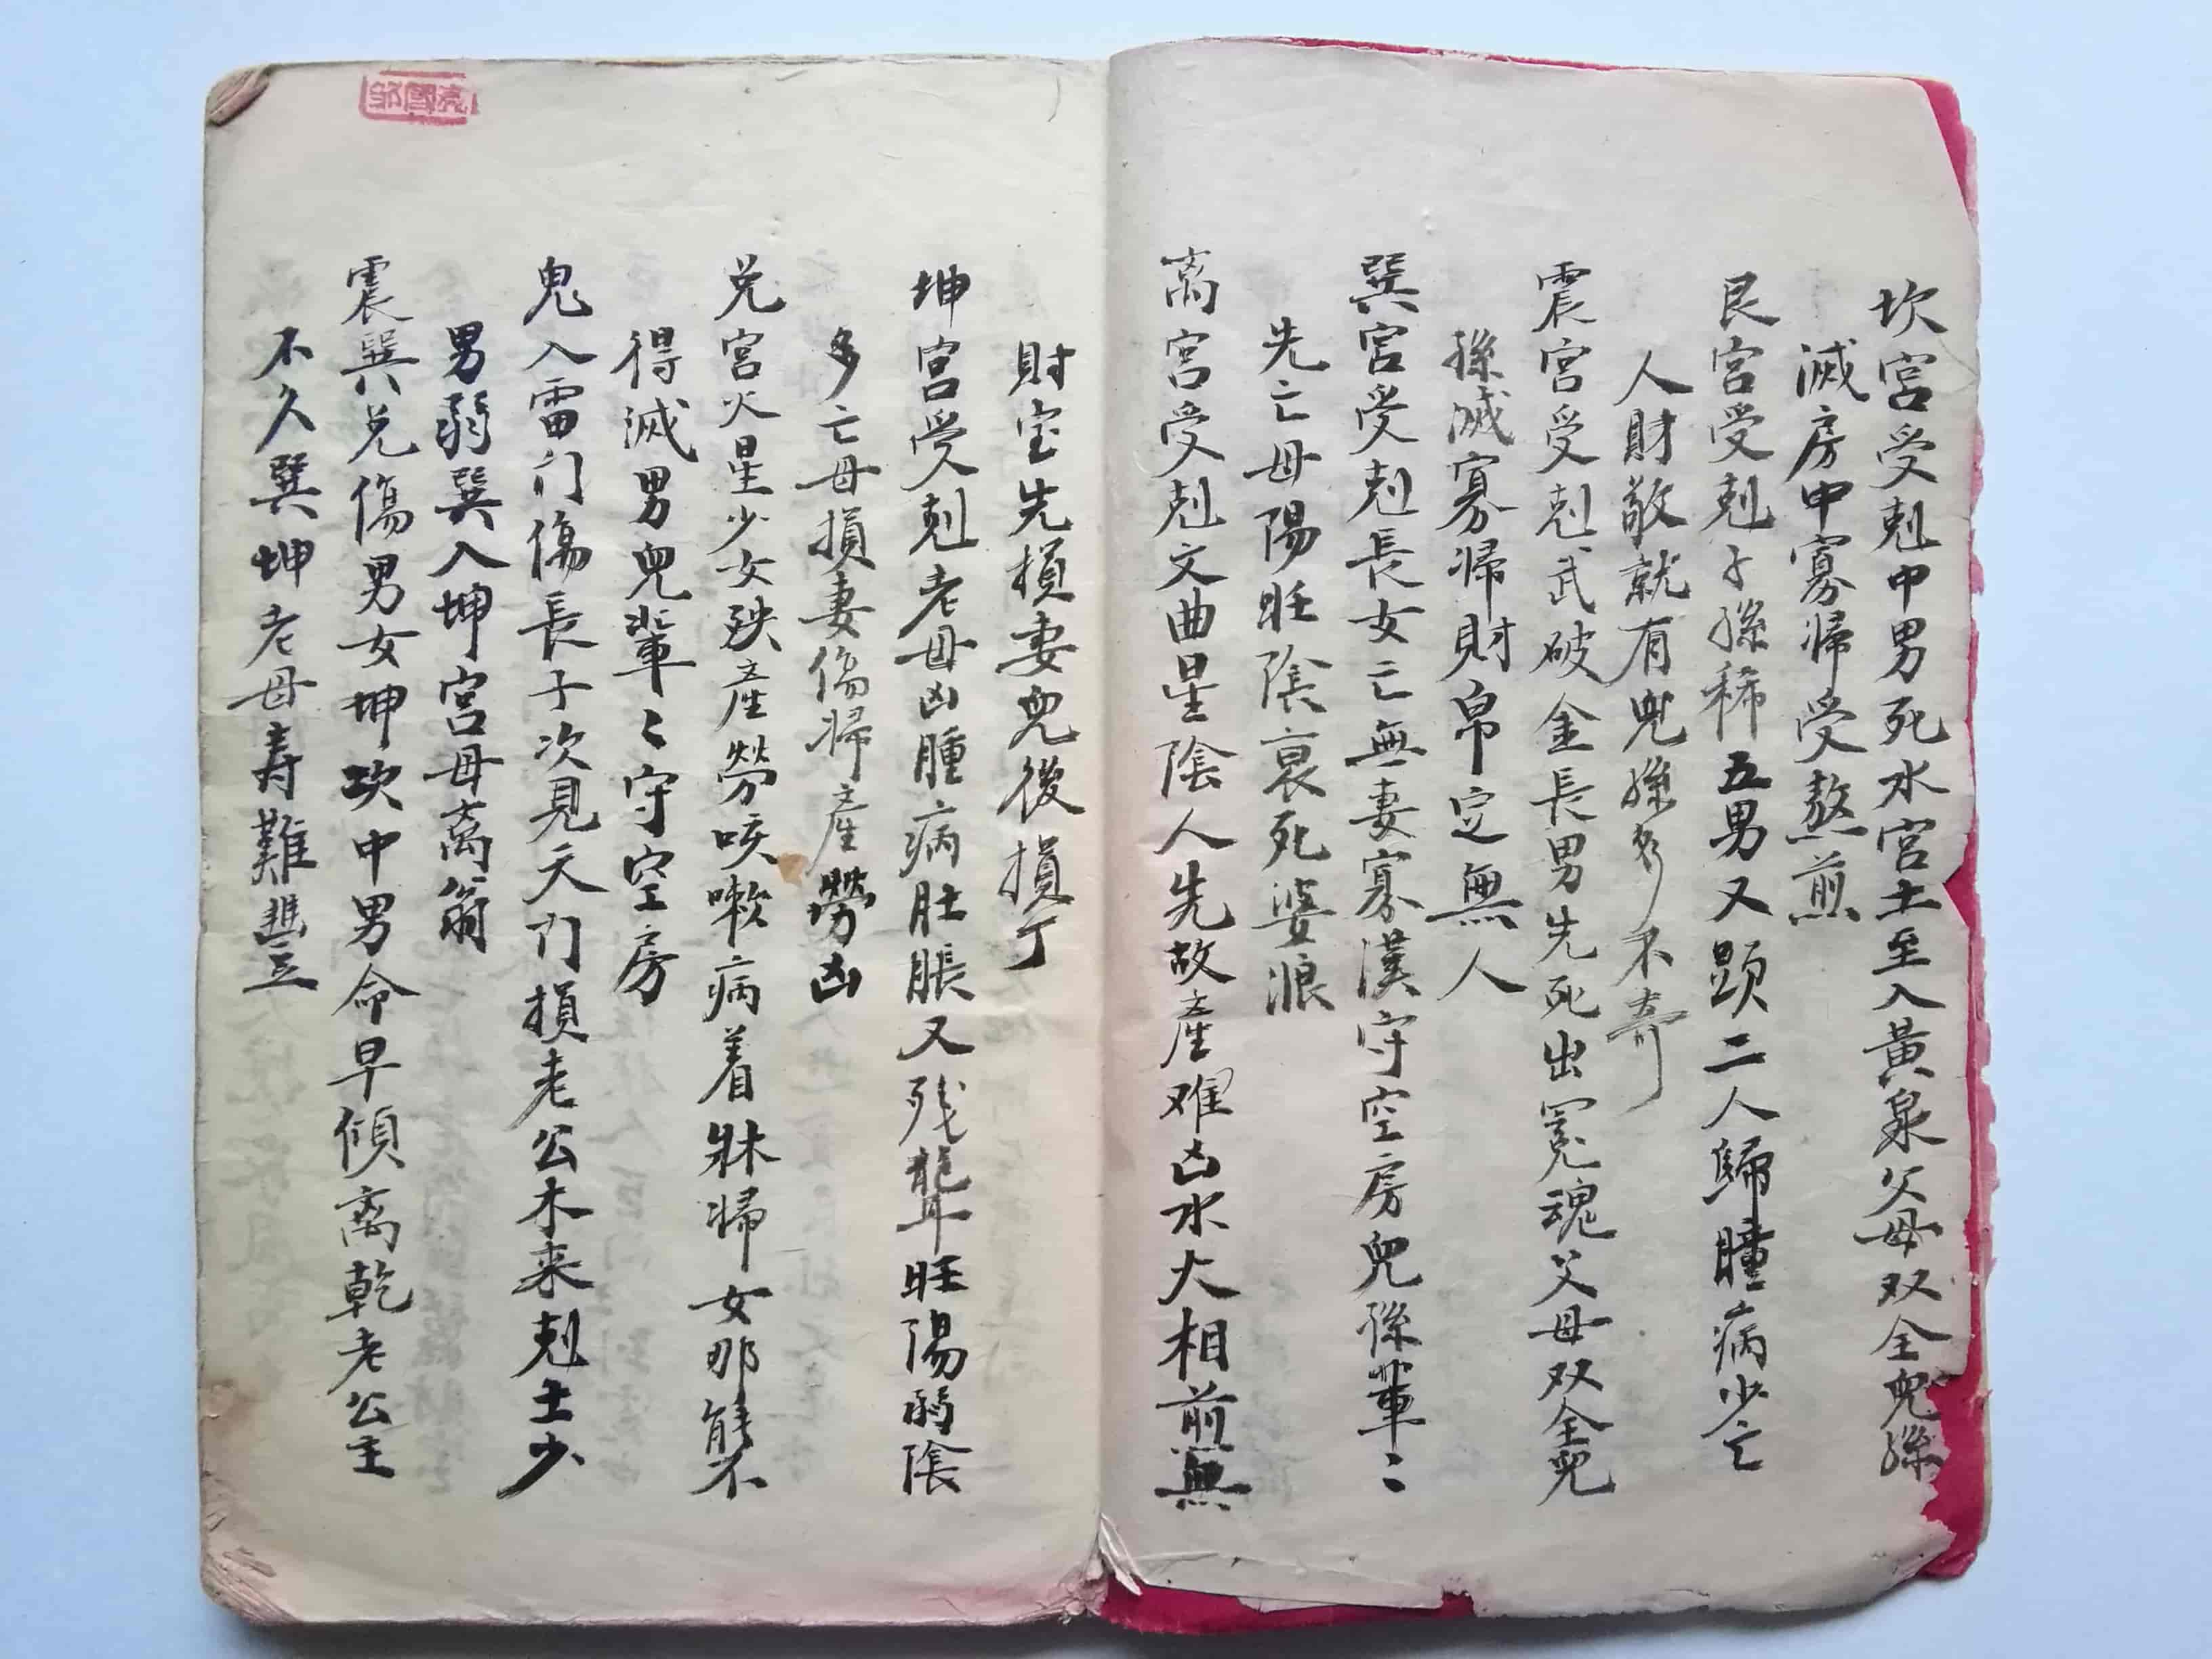 坎宮受剋中男死水宮土至入黃泉父母双全兒孫
滅房中寡帰受熬煎
艮宮受剋子孫稀五男又顕二人歸瞳病少亡
人財敬就有兒孫多不奇
震宮受剋武破金長男先死出冤魂父母双全兒
孫滅寡帰財帛定無人
巽宮受剋長女亡無妻寡漢守空房兒孫輩〻
先亡母陽旺陰衰死婆浪
离宮受剋文曲星陰人先故產难凶水大相前無
財宝先損妻兒後損丁
坤宮受剋老母凶腫病肚脹又残聾旺陽弱陰
多亡母損妻傷帰產勞凶
兑宮火星少女殃產勞咳嗽病着牀帰女那能不
得滅男兒輩〻守空房
鬼入雷门傷長子次見天门損老公木来剋土少
男弱巽入坤宮母离翁
震巽兑傷男女坤坎中男命早傾离乾老公主
不久巽坤老母寿難
邹國亮